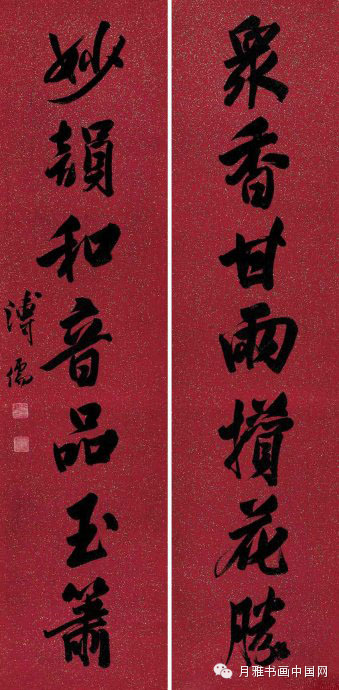 眾香甘雨攢花勝
妙韻和音品玉簫
溥儒
月雅书画中国网